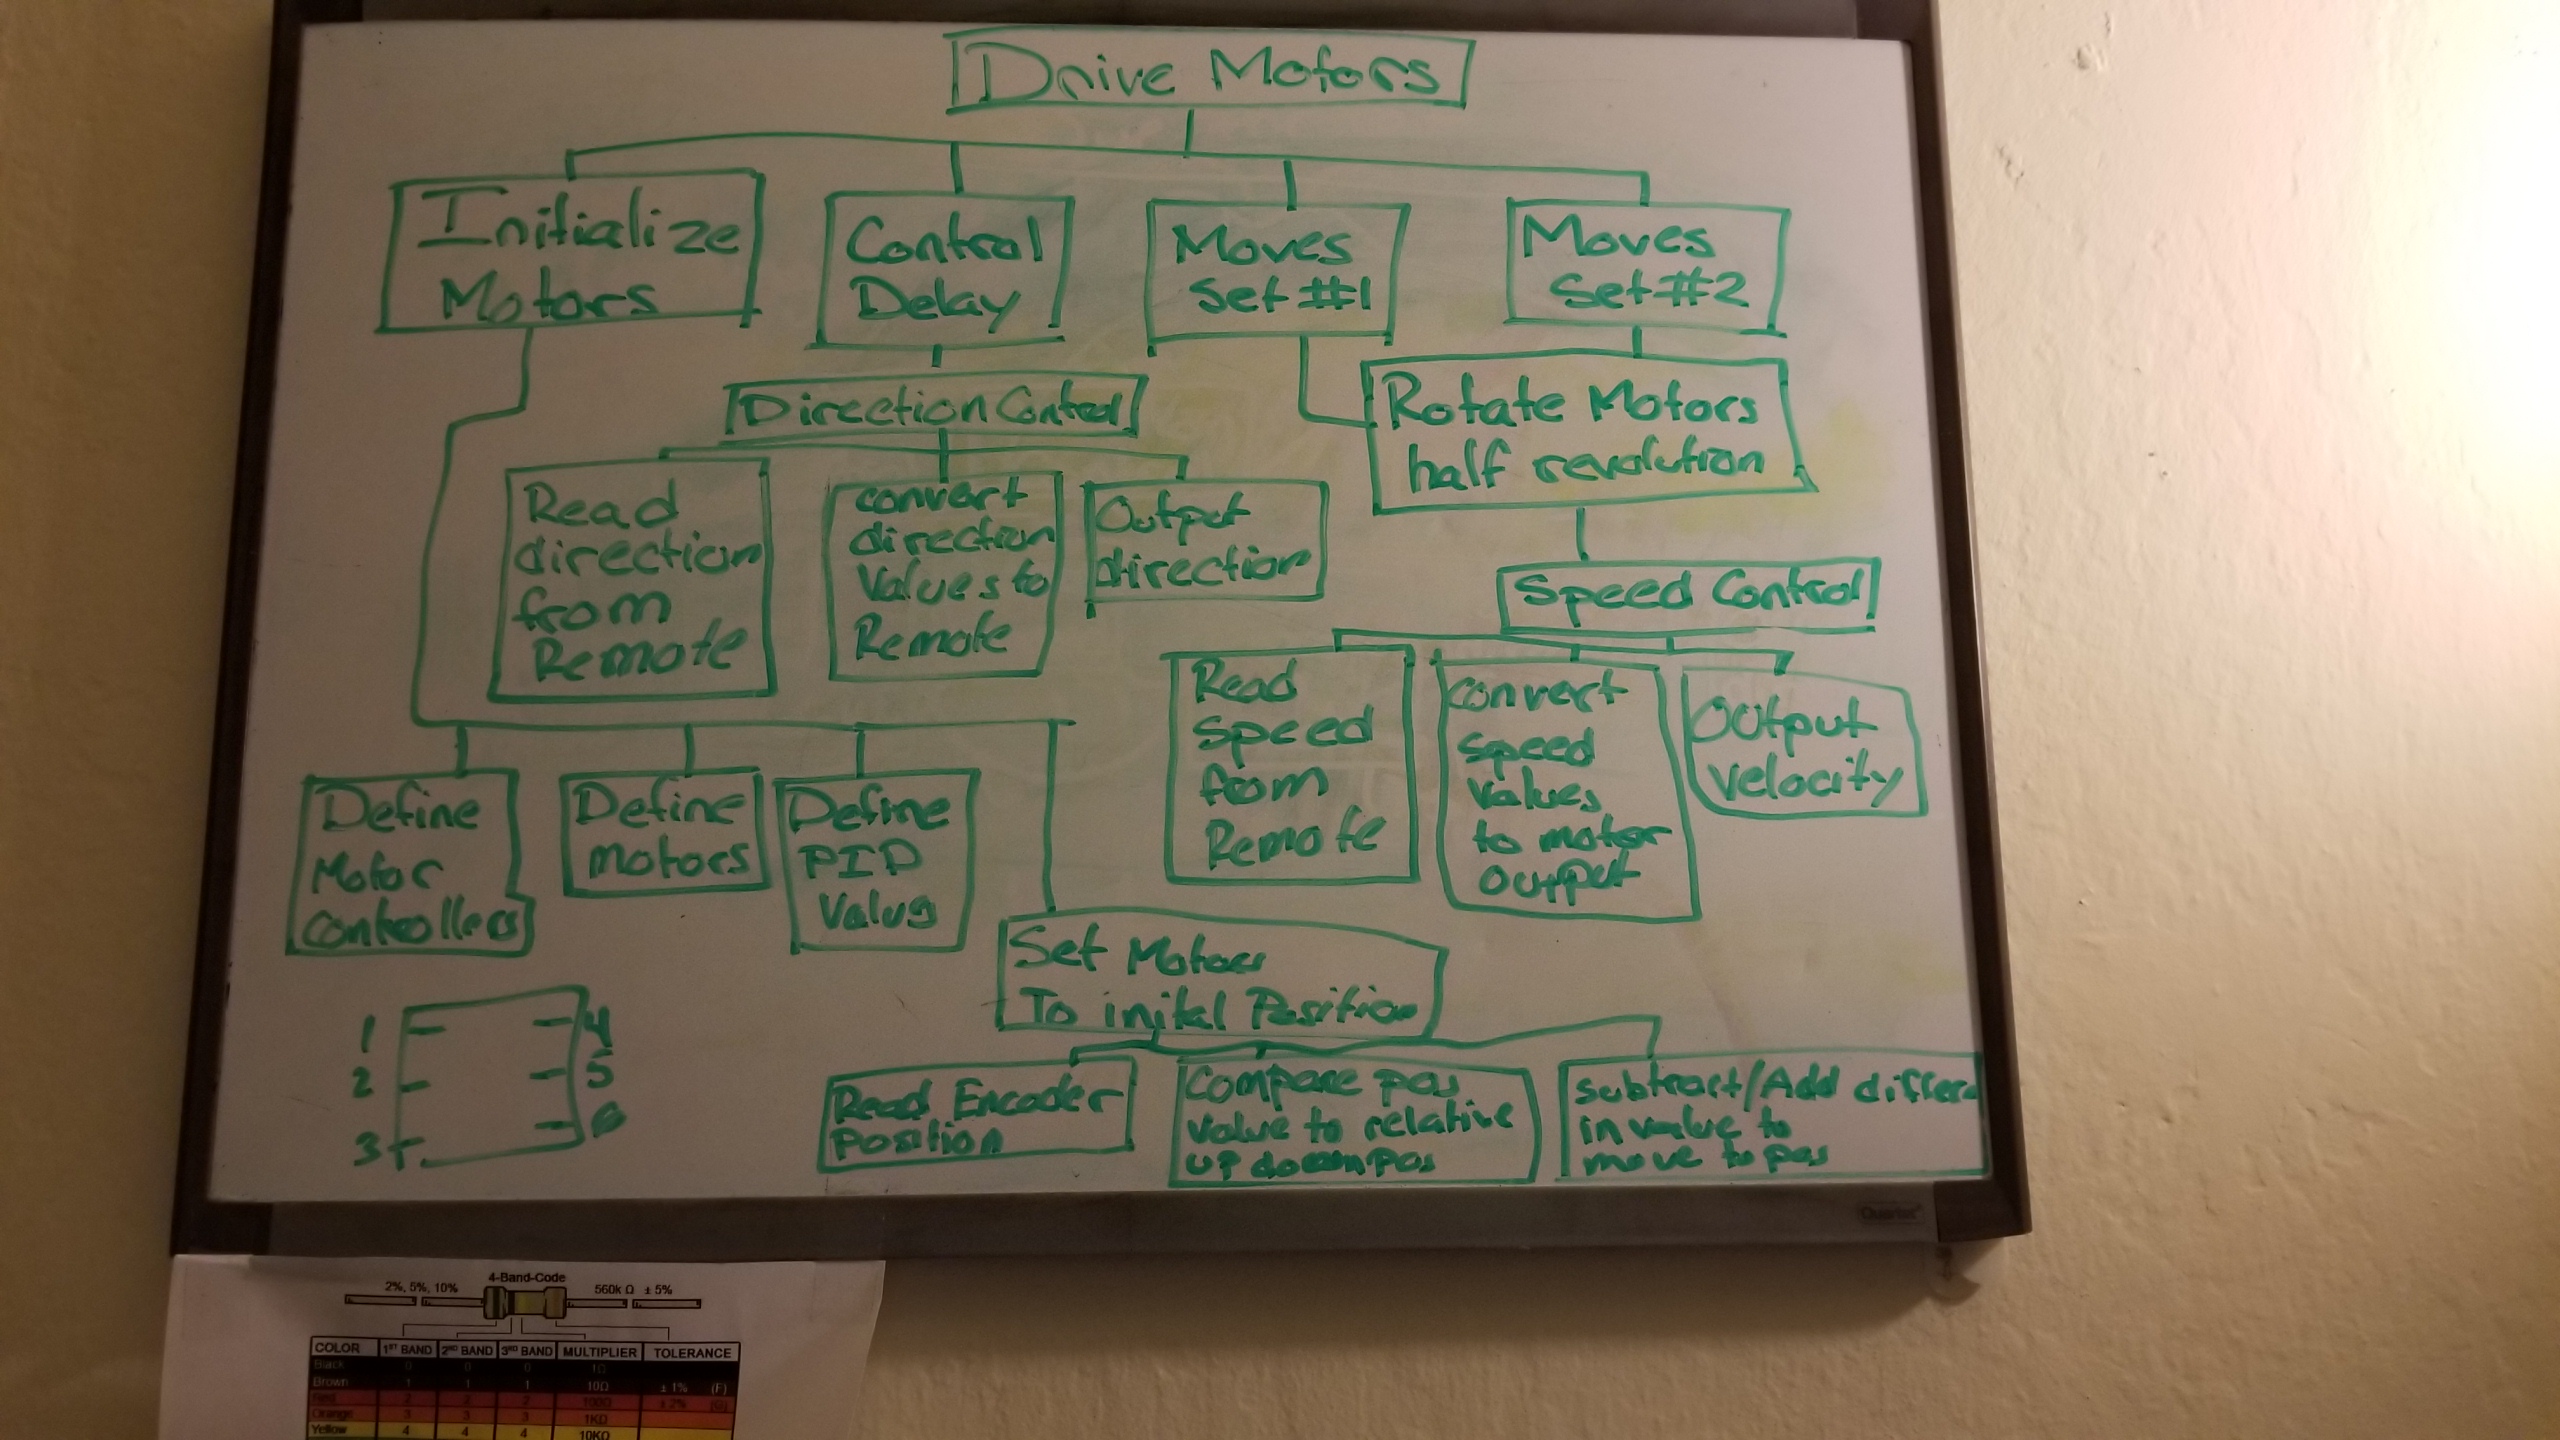 Drive Motors
Initialize
Motors
Control
Delay
Moves
Set #1
Moves
Set #2
Direction Control
Rotate Motors
half revolution
Read
direction
from
Remote
convert
direction
Values to
Remote
Output
direction
Speed Control
Read
Speed
from
Remote
convert
speed
values
to motor
output
Output
velocity
Define
Motor
Controllers
Define
motors
Define
PID
Values
Set Motors
To inital Position
1
2
3
4
5
6
Read Encoder
Position
Compare pos
value to relative
up down pos
Subtract/Add differ
in value to
move to pos
Quartet
4-Band-Code
2%, 5%, 10%
560k Ω ± 5%
COLOR 1ST BAND 2ND BAND 3RD BAND MULTIPLIER TOLERANCE
Black 0 0 0 1Ω
Brown 1 1 1 10Ω ± 1% (F)
Red 2 2 2 100Ω ± 2% (G)
Orange 3 3 3 1KΩ
Yellow 4 4 4 10KΩ